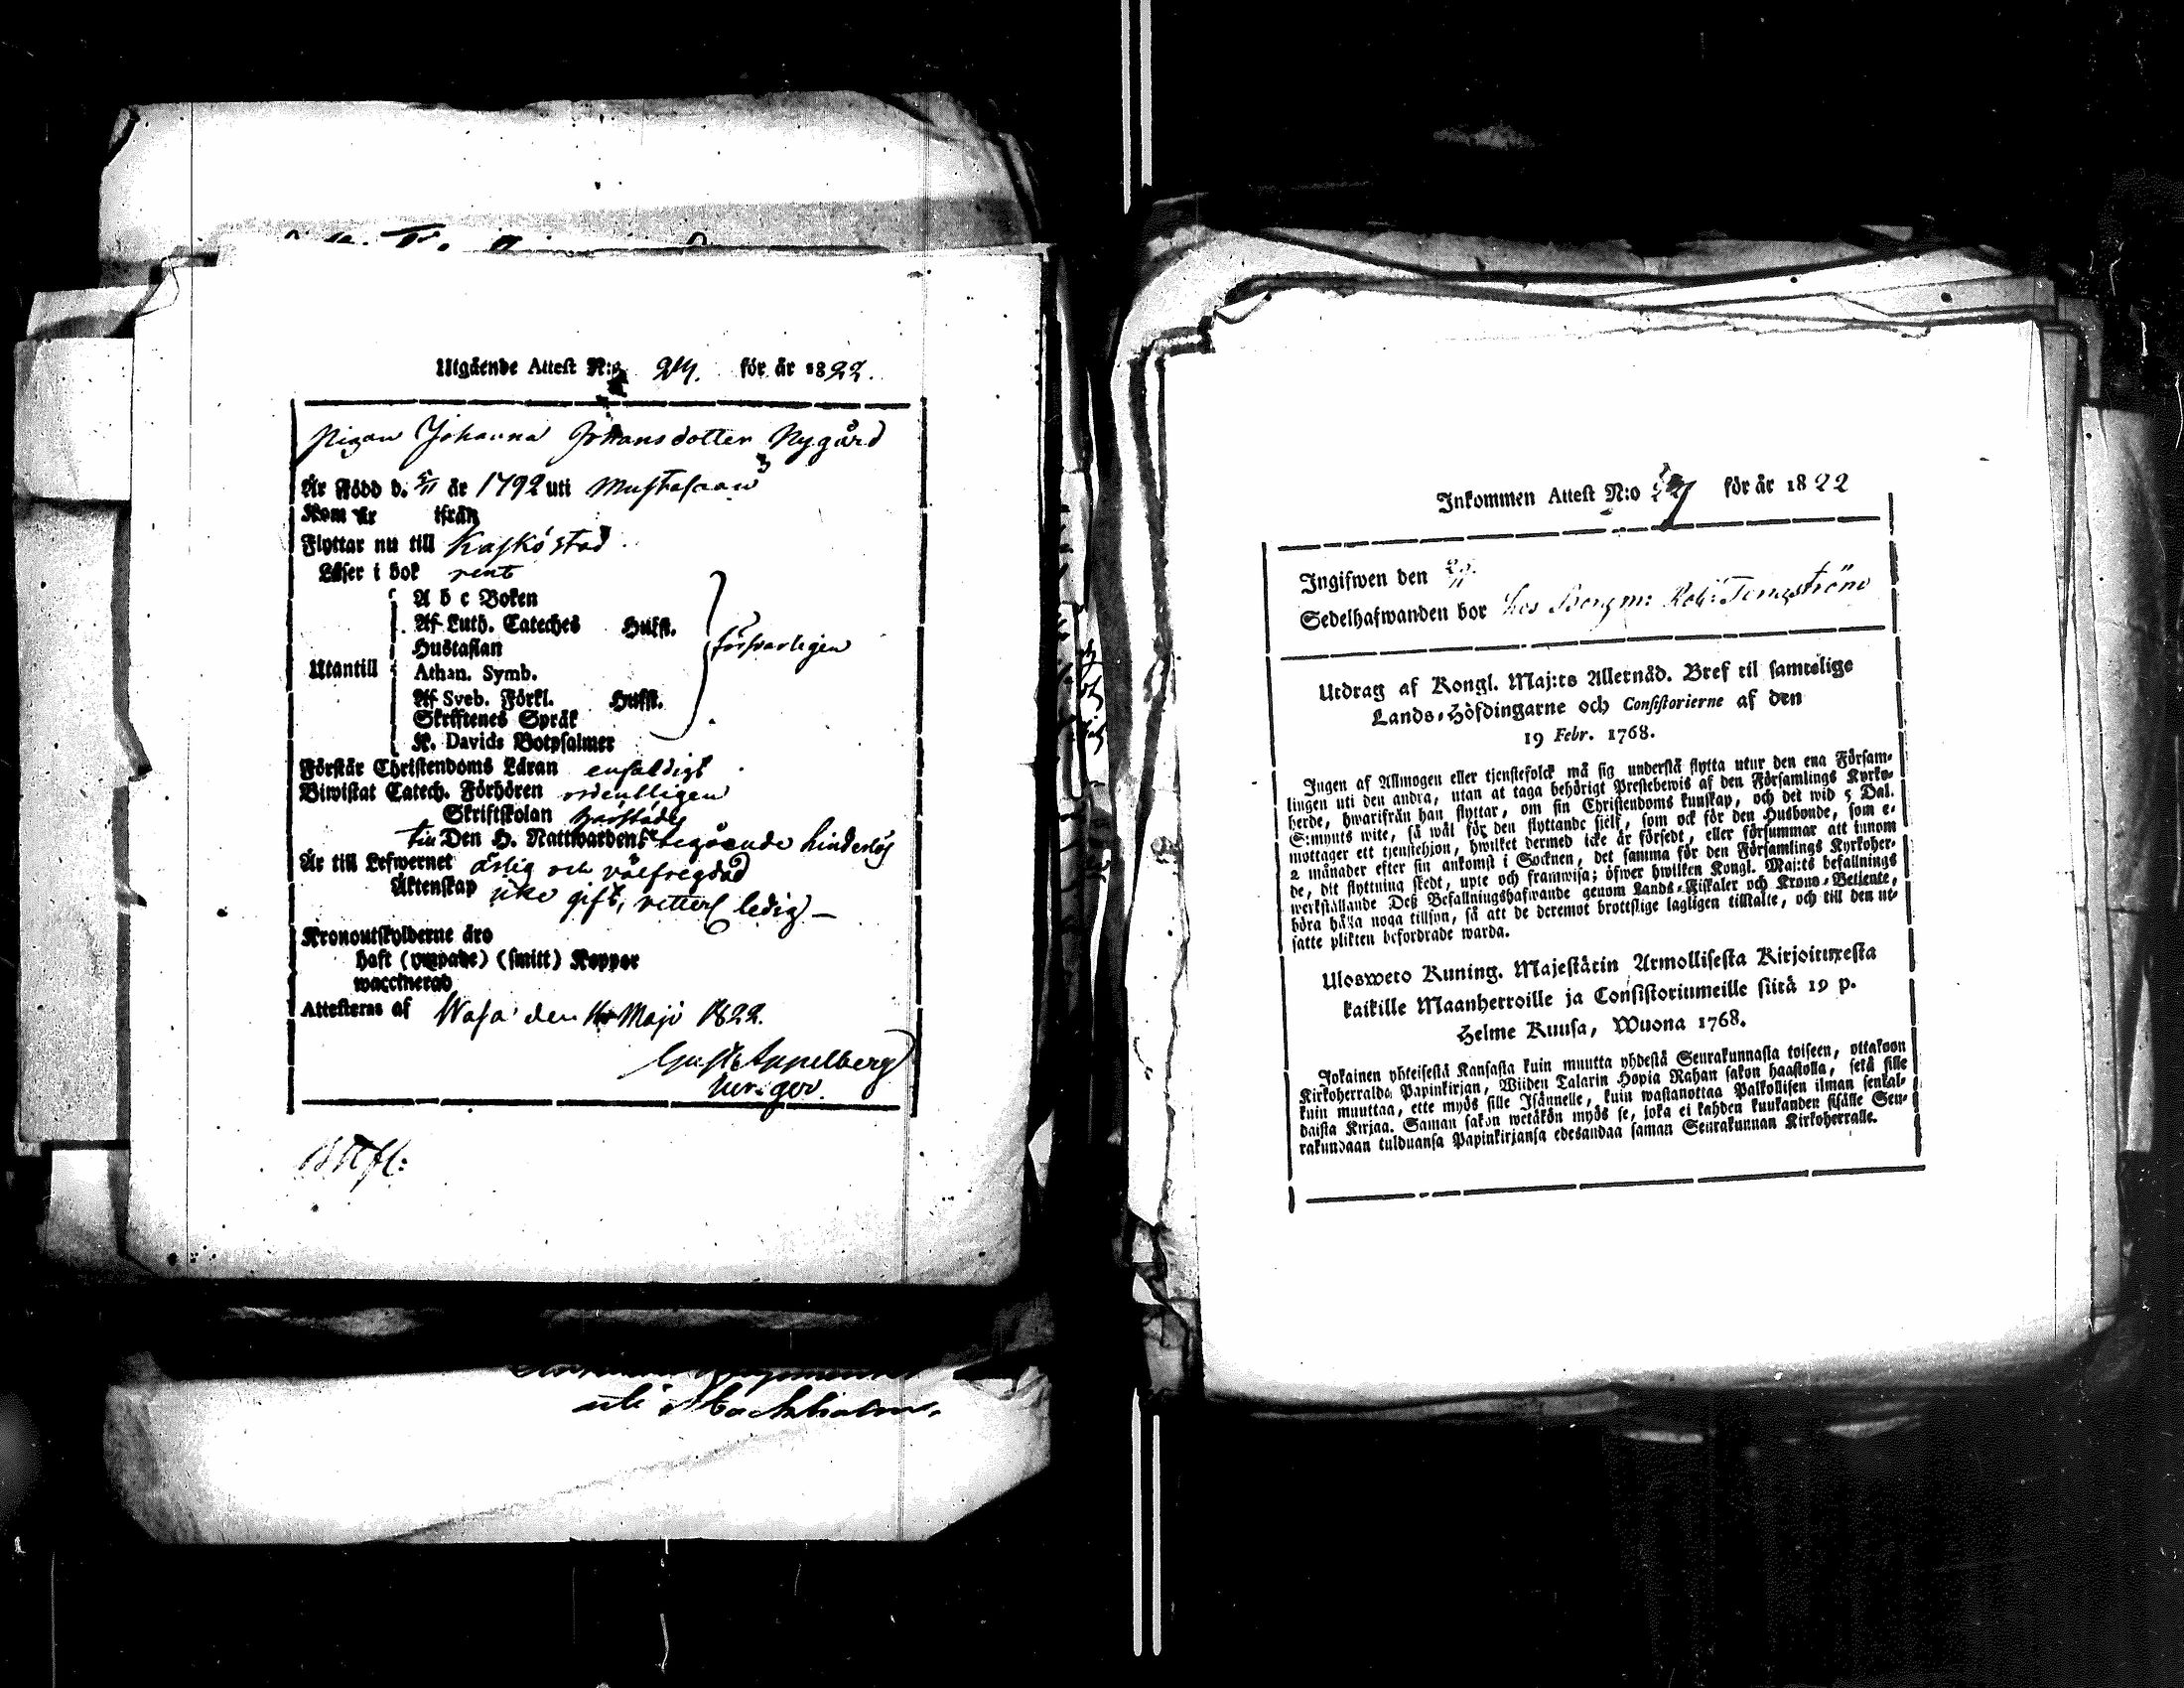 Utgående Attest N:o 24. för år 1822.
Pigan Johanna Johansdotter Nygård
Är Född d. 5/11 år 1792 uti Mustasaari
Kom år ifrån
Flyttar nu till Kaskö stad.
Läser i bok rent
A b c Boken
Af Luth. Cateches Hulst.
Hustaflan
Utantill Athan. Symb. försvarligen
Af Sveb. Förkl. Hulst.
Skrifftenes Språk
K. Davids Botpsalmer
Förstår Christendoms Läran enfaldigt
Biwistat Catech. Förhören ordentligen
Skriftskolan
till Den H. Nattwardens begående hinderlös
Är till Lefwernet ärlig och välfregdad
Äktenskap icke gift, rätters ledig –
Kronoutskylderne äro
haft (ympade) (smitt) Koppor
waccinerad
Attesteras af Wasa den Maji 1822.
Gust. Appelberg
uti
Inkommen Attest N:o för år 1822
Ingifwen den
Sedelhafwanden bor hos Borgm: Rob: Tengström
Utdrag af Kongl. Maj:ts Allernåd. Bref til samtelige
Lands-Höfdingarne och Consistorierne af den
19 Febr. 1768.
Ingen af Allmogen eller tjenstefolck må sig understå flytta utur den ena Försam-
lingen uti den andra, utan at taga behörigt Prestebewis af den Församlings Kyrko-
herde, hwarifrån han flyttar, om sin Christendoms kunskap, och det wid 5 Dal.
S:mynts wite, så wäl för den flyttande sjelf, som ock för den Husbonde, som e-
mottager ett tjenstehjon, hwilket dermed icke är försedt, eller försummar att innom
2 månader efter sin ankomst i Socknen, det samma för den Församlings Kyrkoher-
de, dit flyttning skedt, upte och framwisa; öfwer hwilken Kongl. Maj:ts befallnings
werkställande Deß Befallningshafwande genom Lands-Fiskaler och Krono-Betjente,
böra hålla noga tillsyn, så att de deremot brottslige lagligen tilltalte, och till den ut-
satte plikten befordrade warda.
Ulosweto Kuning. Majestätin Armollisesta Kirjoituxesta
kaikille Maanherroille ja Consistoriumeille siitä 19 p.
Helme Kuusa, Wuona 1768.
Jokainen yhteisestä Kansasta kuin muutta yhdestä Seurakunnasta toiseen, ottakoon
Kirkoherralda Papinkirjan, Wiiden Talarin Hopia Rahan sakon haastolla, sekä sille
kuin muuttaa, ette myös sille Isännelle, kuin wastanottaa Palkollisen ilman senkal-
daista Kirjaa. Saman sakon wetäkön myös se, joka ei kahden kuukauden sisälle Seu-
rakundaan tulduansa Papinkirjansa edesandaa saman Seurakunnan Kirkoherralle.